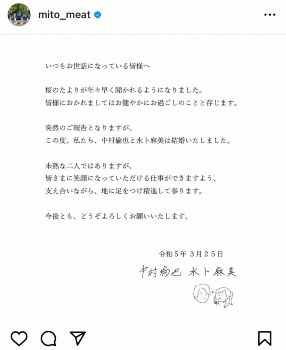 mito_meat
いつもお世話になっている皆様へ
桜のたよりが年々早く聞かれるようになりました。
皆様におかれましてはお健やかにお過ごしのことと存じます。
突然のご報告となりますが、
この度、私たち、中村倫也と水卜麻美は結婚いたしました。
未熟な二人ではありますが、
皆さまに笑顔になっていただける仕事ができますよう、
支え合いながら、地に足をつけ精進して参ります。
今後とも、どうぞよろしくお願いいたします。
令和５年３月２５日
中村倫也 水卜麻美